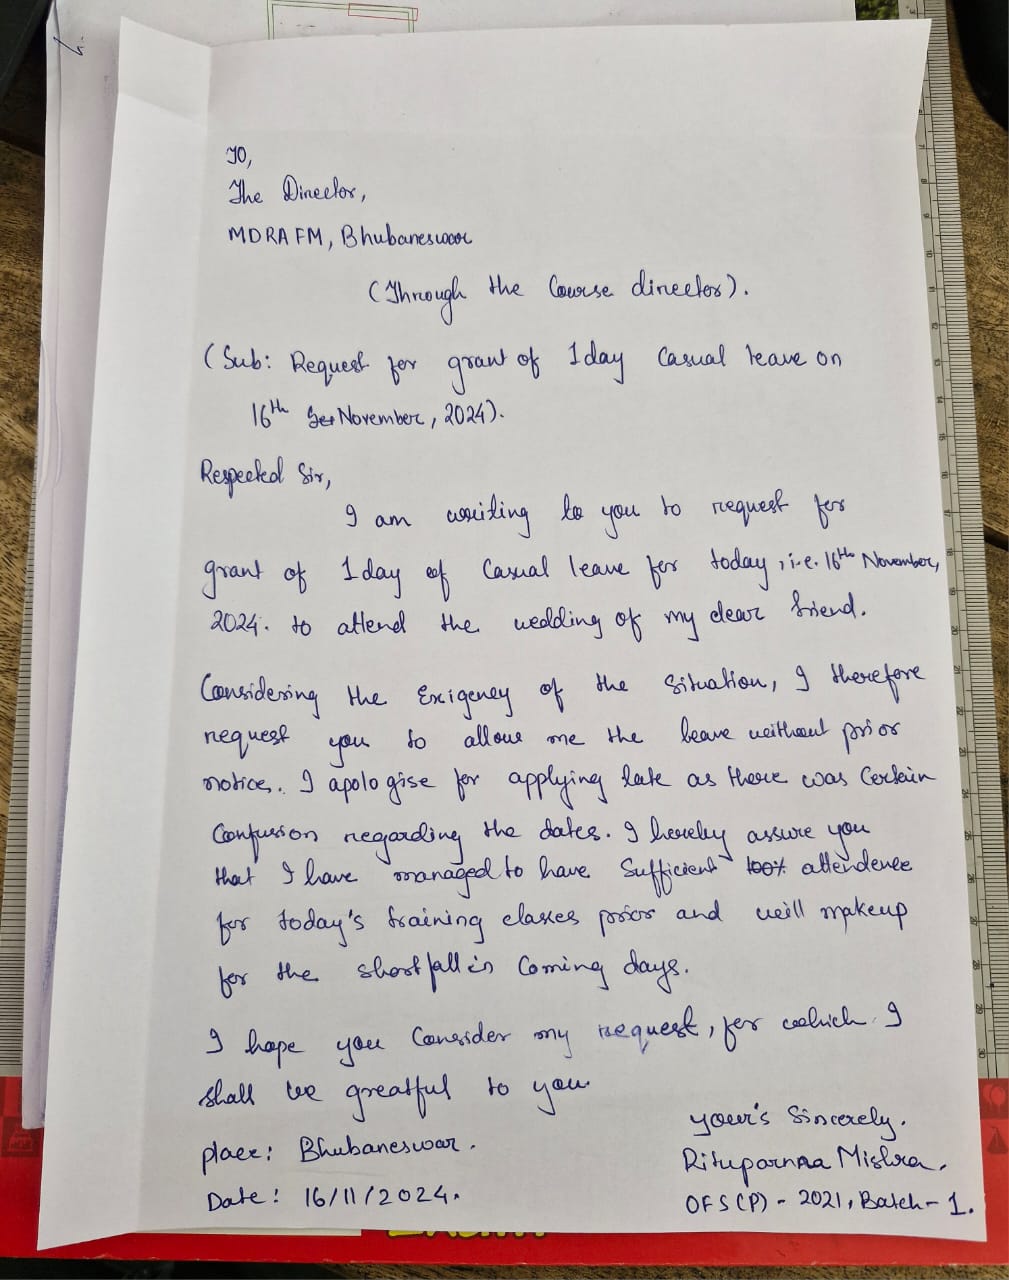 To,
The Director,
MDRAFM, Bhubaneswar
(Through the Course director).
(Sub: Request for grant of 1day Casual leave on
16th Se November, 2024).
Respected Sir,
I am writing to you to request for
grant of 1day of Casual leave for today, i.e. 16th November,
2024. to attend the wedding of my dear friend.
Considering the Exigency of the Situation, I therefore
request you to allow me the leave without prior
notice. I apologise for applying late as there was Certain
Confusion regarding the dates. I hereby assure you
that I have managed to have Sufficient 100% attendence
for today's training classes prior and will makeup
for the shortfall in Coming days.
I hope you Consider my request, for which I
shall be greatful to you
place: Bhubaneswar.
Date: 16/11/2024.
your's Sincerely.
Rituparna Mishra.
OFS(P) - 2021, Batch - 1.